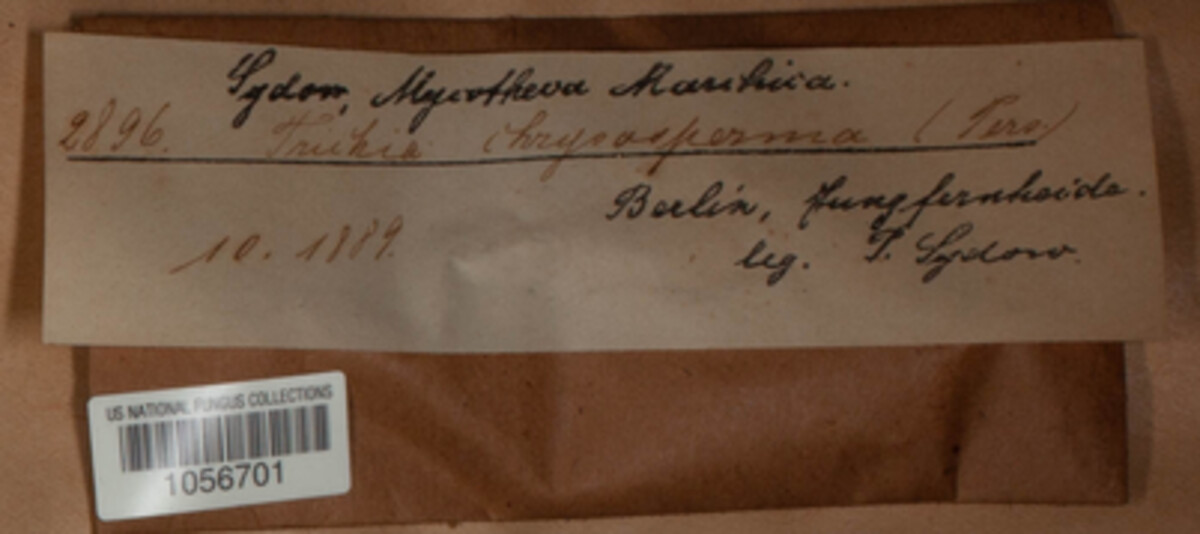 Sydow, Mycotheca Marchica.
2896. Trichia chrysosperma (Pers)
Berlin, Jungfernheide.
10. 1889.
leg. P. Sydow.
US NATIONAL FUNGUS COLLECTIONS
1056701